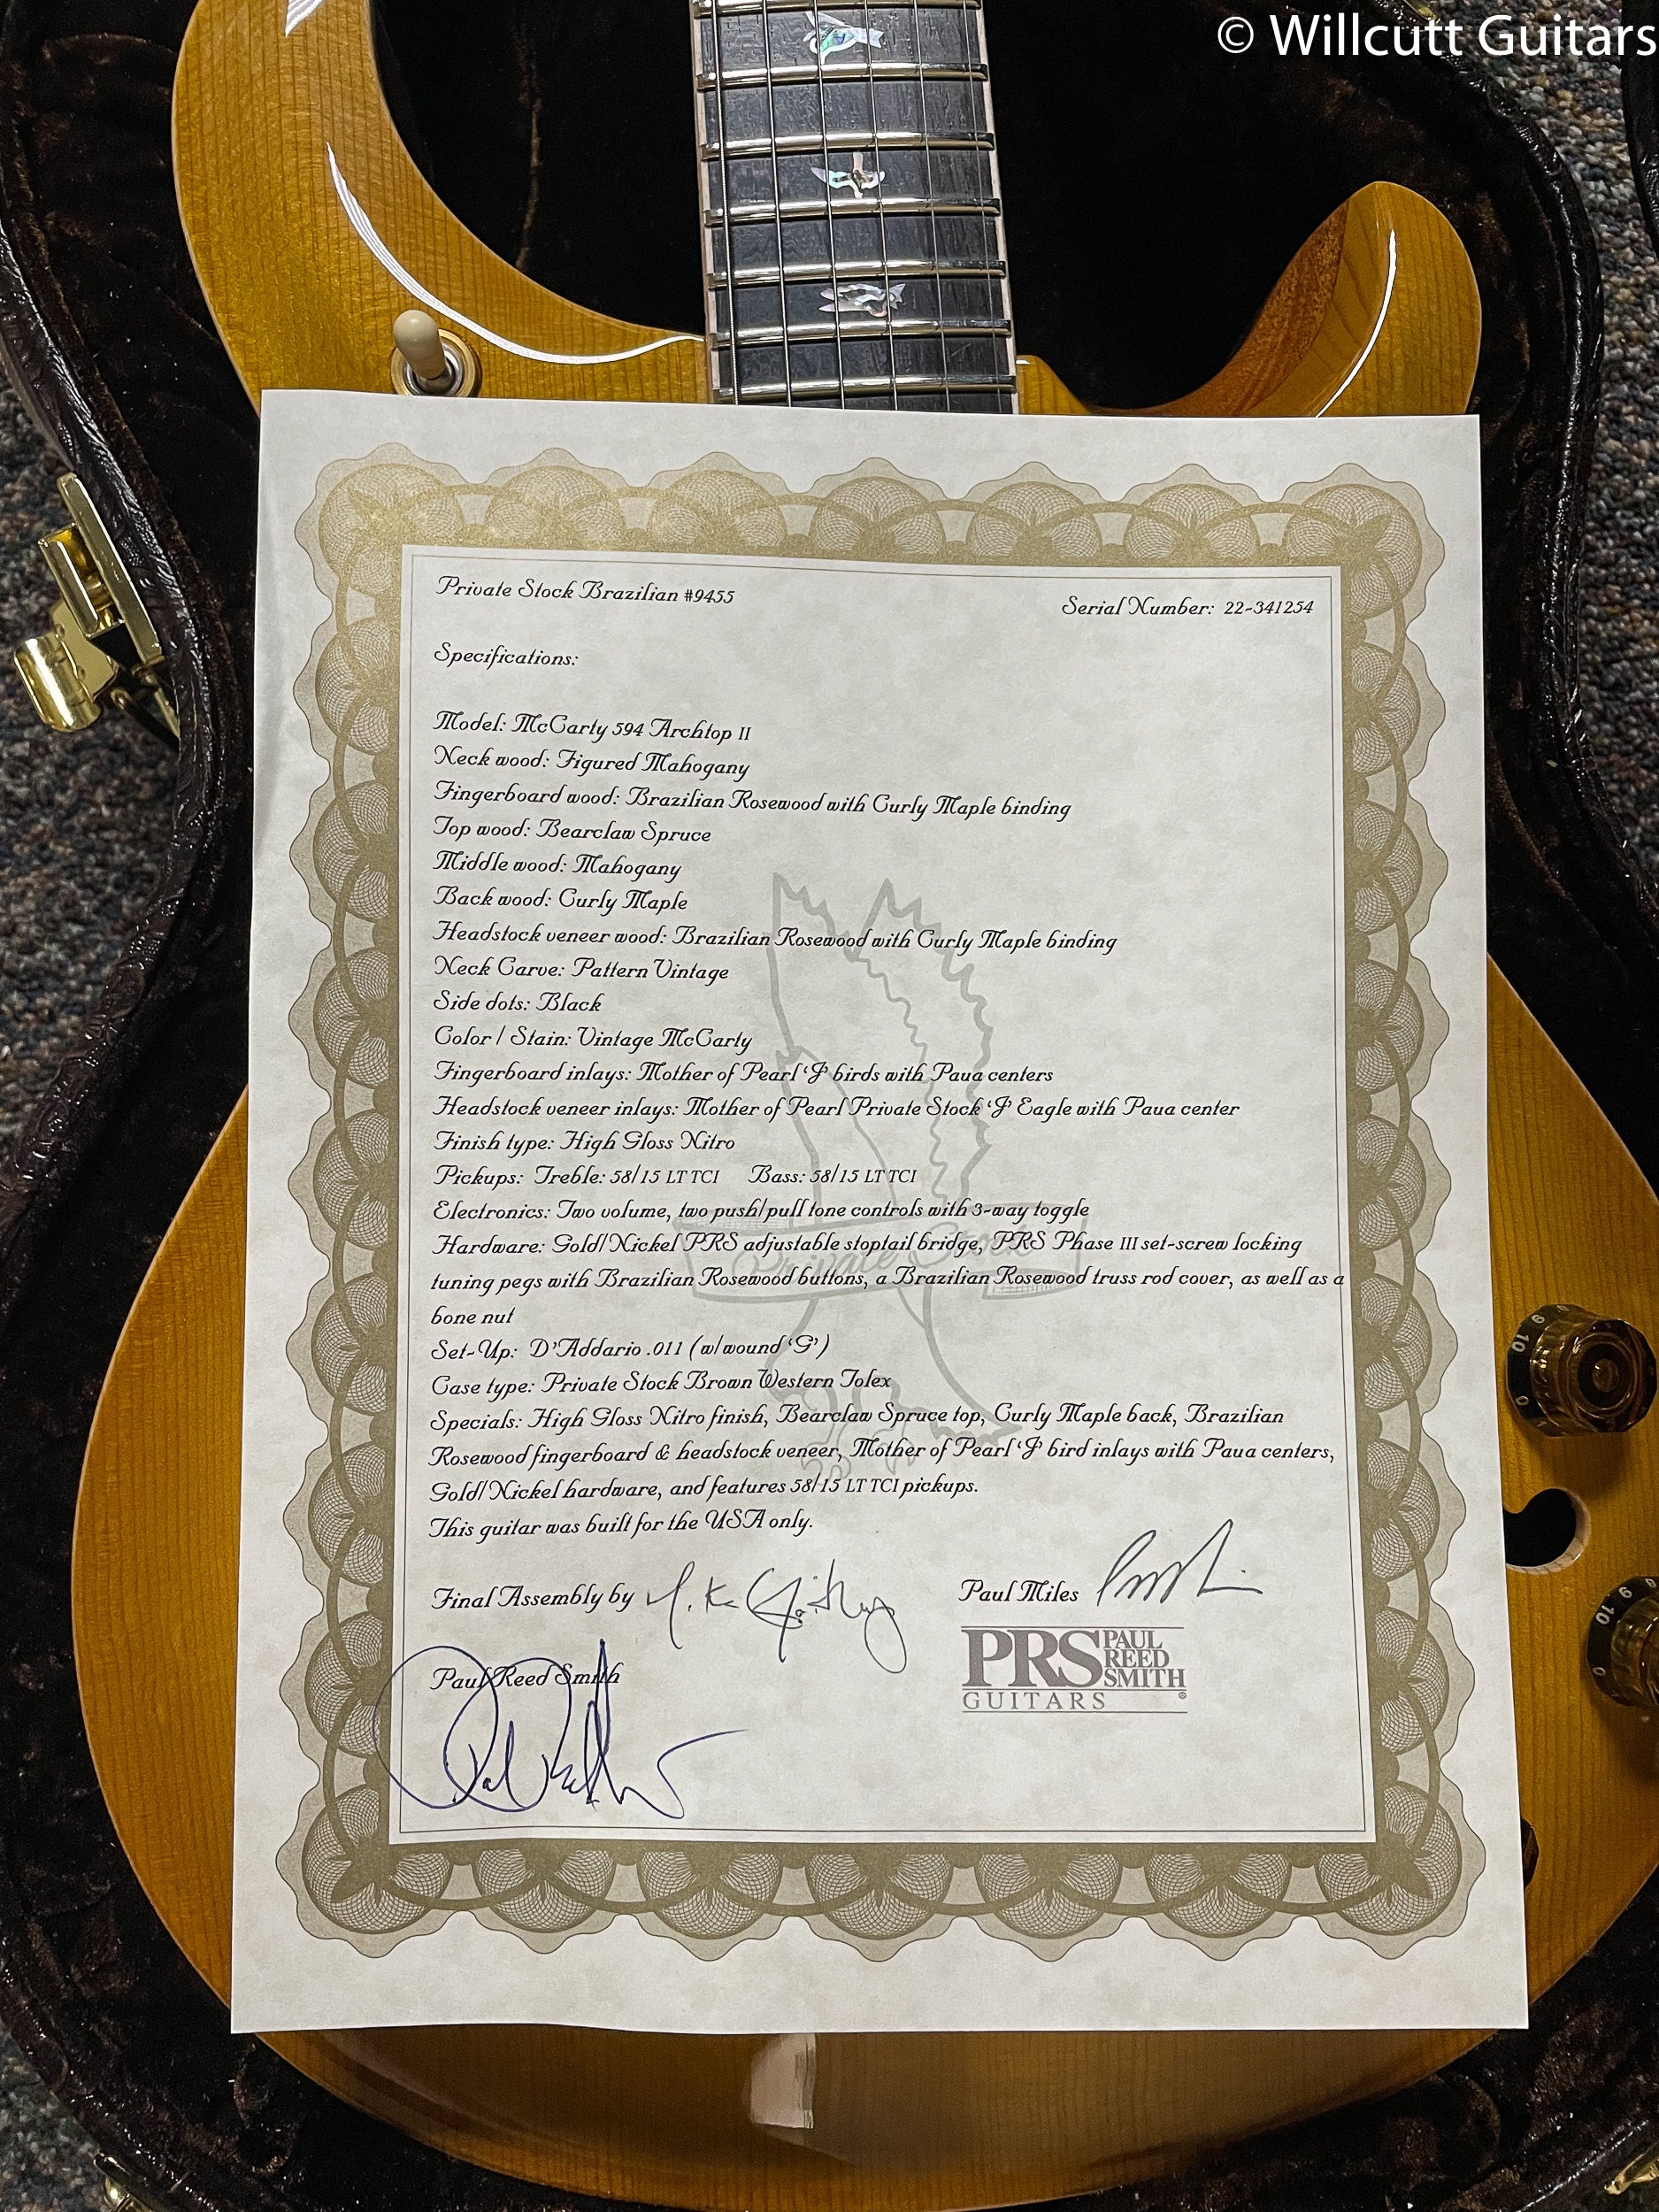 © Willcutt Guitars
Private Stock Brazilian #9455
Serial Number: 22-341254
Specifications:
Model: McCarty 594 Archtop II
Neck wood: Figured Mahogany
Fingerboard wood: Brazilian Rosewood with Curly Maple binding
Top wood: Bearclaw Spruce
Middle wood: Mahogany
Back wood: Curly Maple
Headstock veneer wood: Brazilian Rosewood with Curly Maple binding
Neck Carve: Pattern Vintage
Side dots: Black
Color / Stain: Vintage McCarty
Fingerboard inlays: Mother of Pearl 'J' birds with Paua centers
Headstock veneer inlays: Mother of Pearl Private Stock 'J' Eagle with Paua center
Finish type: High Gloss Nitro
Pickups: Treble: 58/15 LT TCI Bass: 58/15 LT TCI
Electronics: Two volume, two push/pull tone controls with 3-way toggle
Hardware: Gold/Nickel PRS adjustable stoptail bridge, PRS Phase III set-screw locking
tuning pegs with Brazilian Rosewood buttons, a Brazilian Rosewood truss rod cover, as well as a
bone nut
Set-Up: D'Addario .011 (w/wound 'G')
Case type: Private Stock Brown Western Tolex
Specials: High Gloss Nitro finish, Bearclaw Spruce top, Curly Maple back, Brazilian
Rosewood fingerboard & headstock veneer, Mother of Pearl 'J' bird inlays with Paua centers,
Gold/Nickel hardware, and features 58/15 LT TCI pickups.
This guitar was built for the USA only.
Final Assembly by
Paul Miles
Paul Reed Smith
PRS PAUL REED SMITH
GUITARS
Private Stock
9 10
0
9 10
0